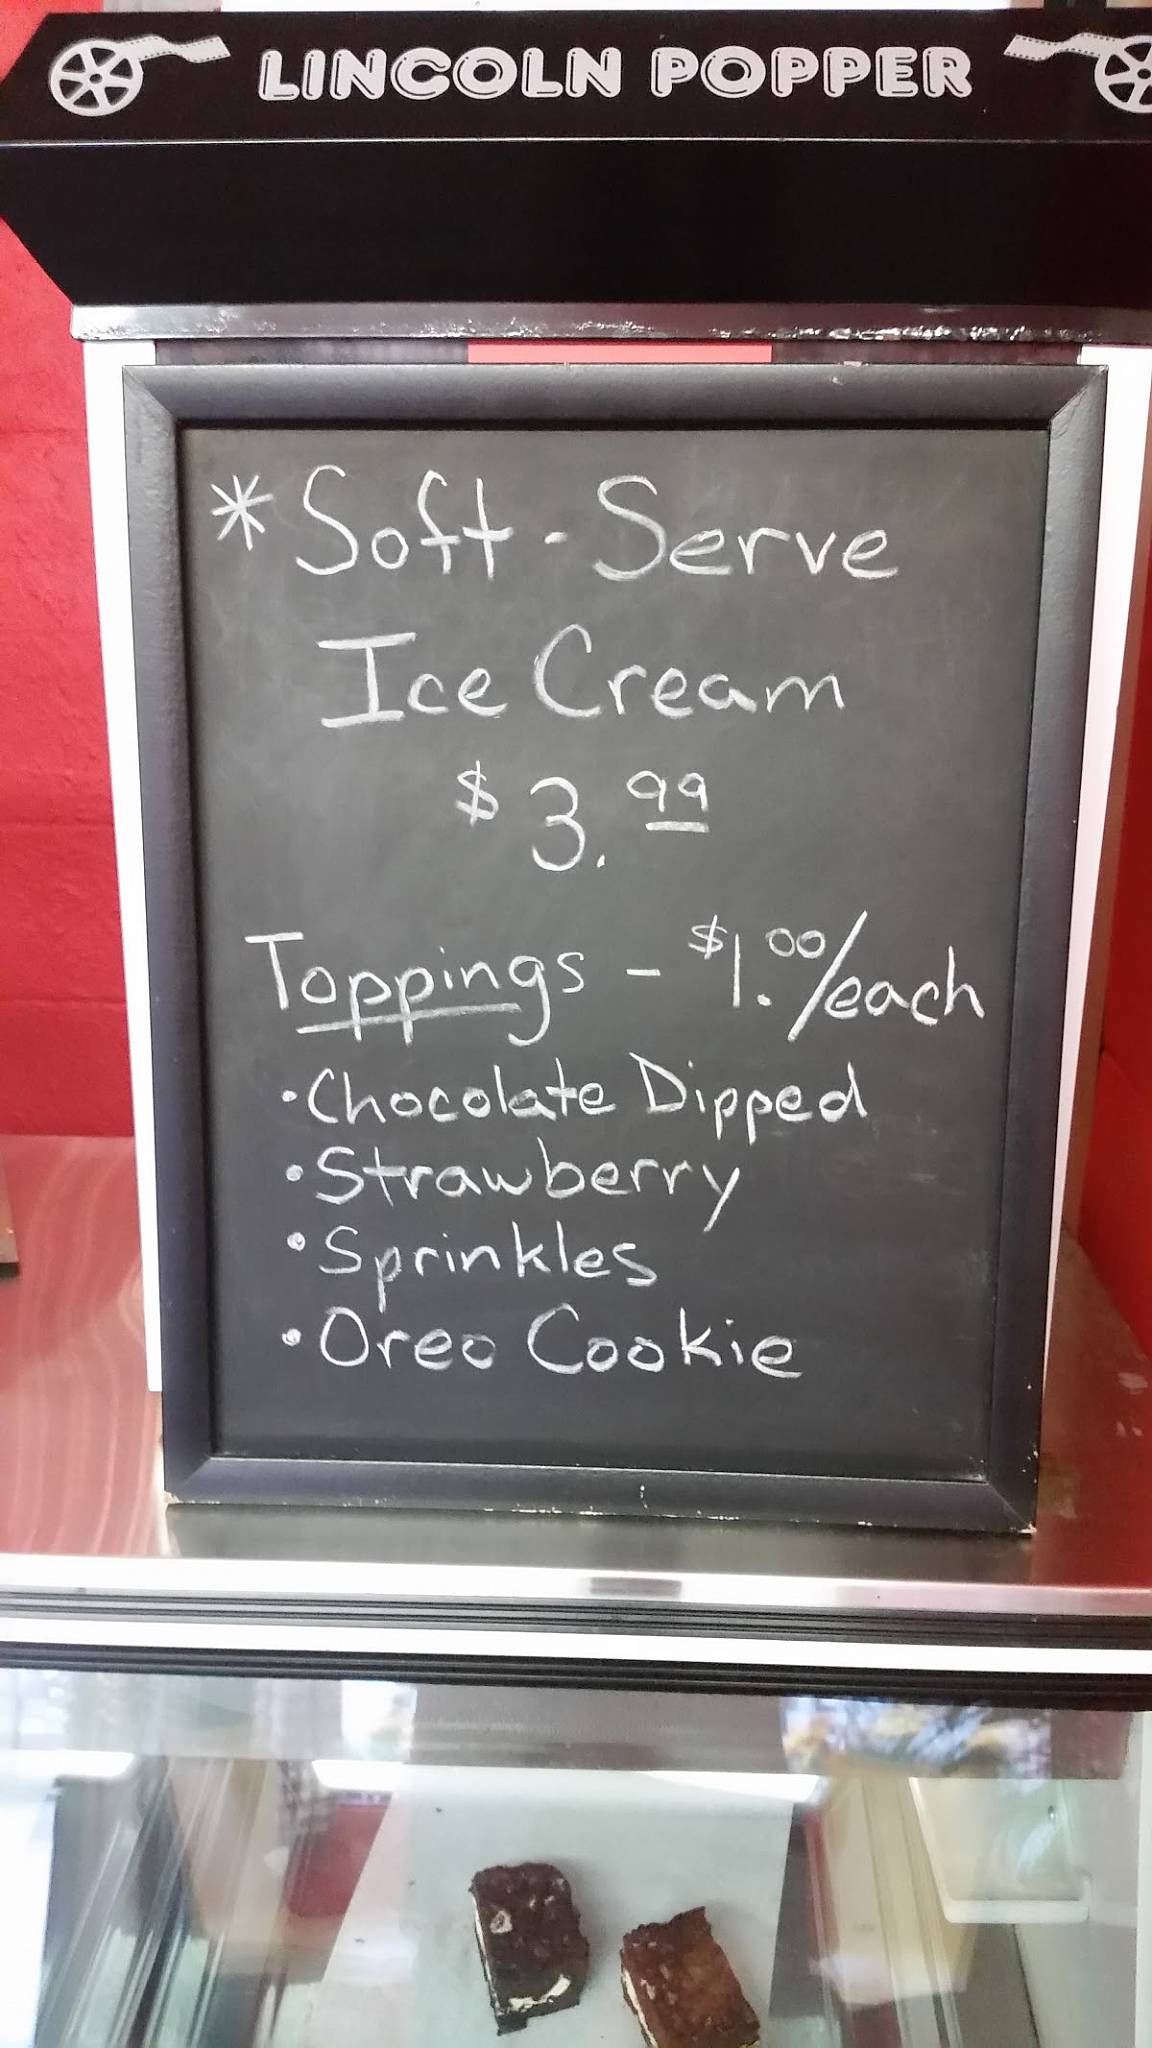 LINCOLN POPPER
*Soft-Serve
Ice Cream
$3.99
Toppings - $1.00/each
•Chocolate Dipped
•Strawberry
•Sprinkles
•Oreo Cookie